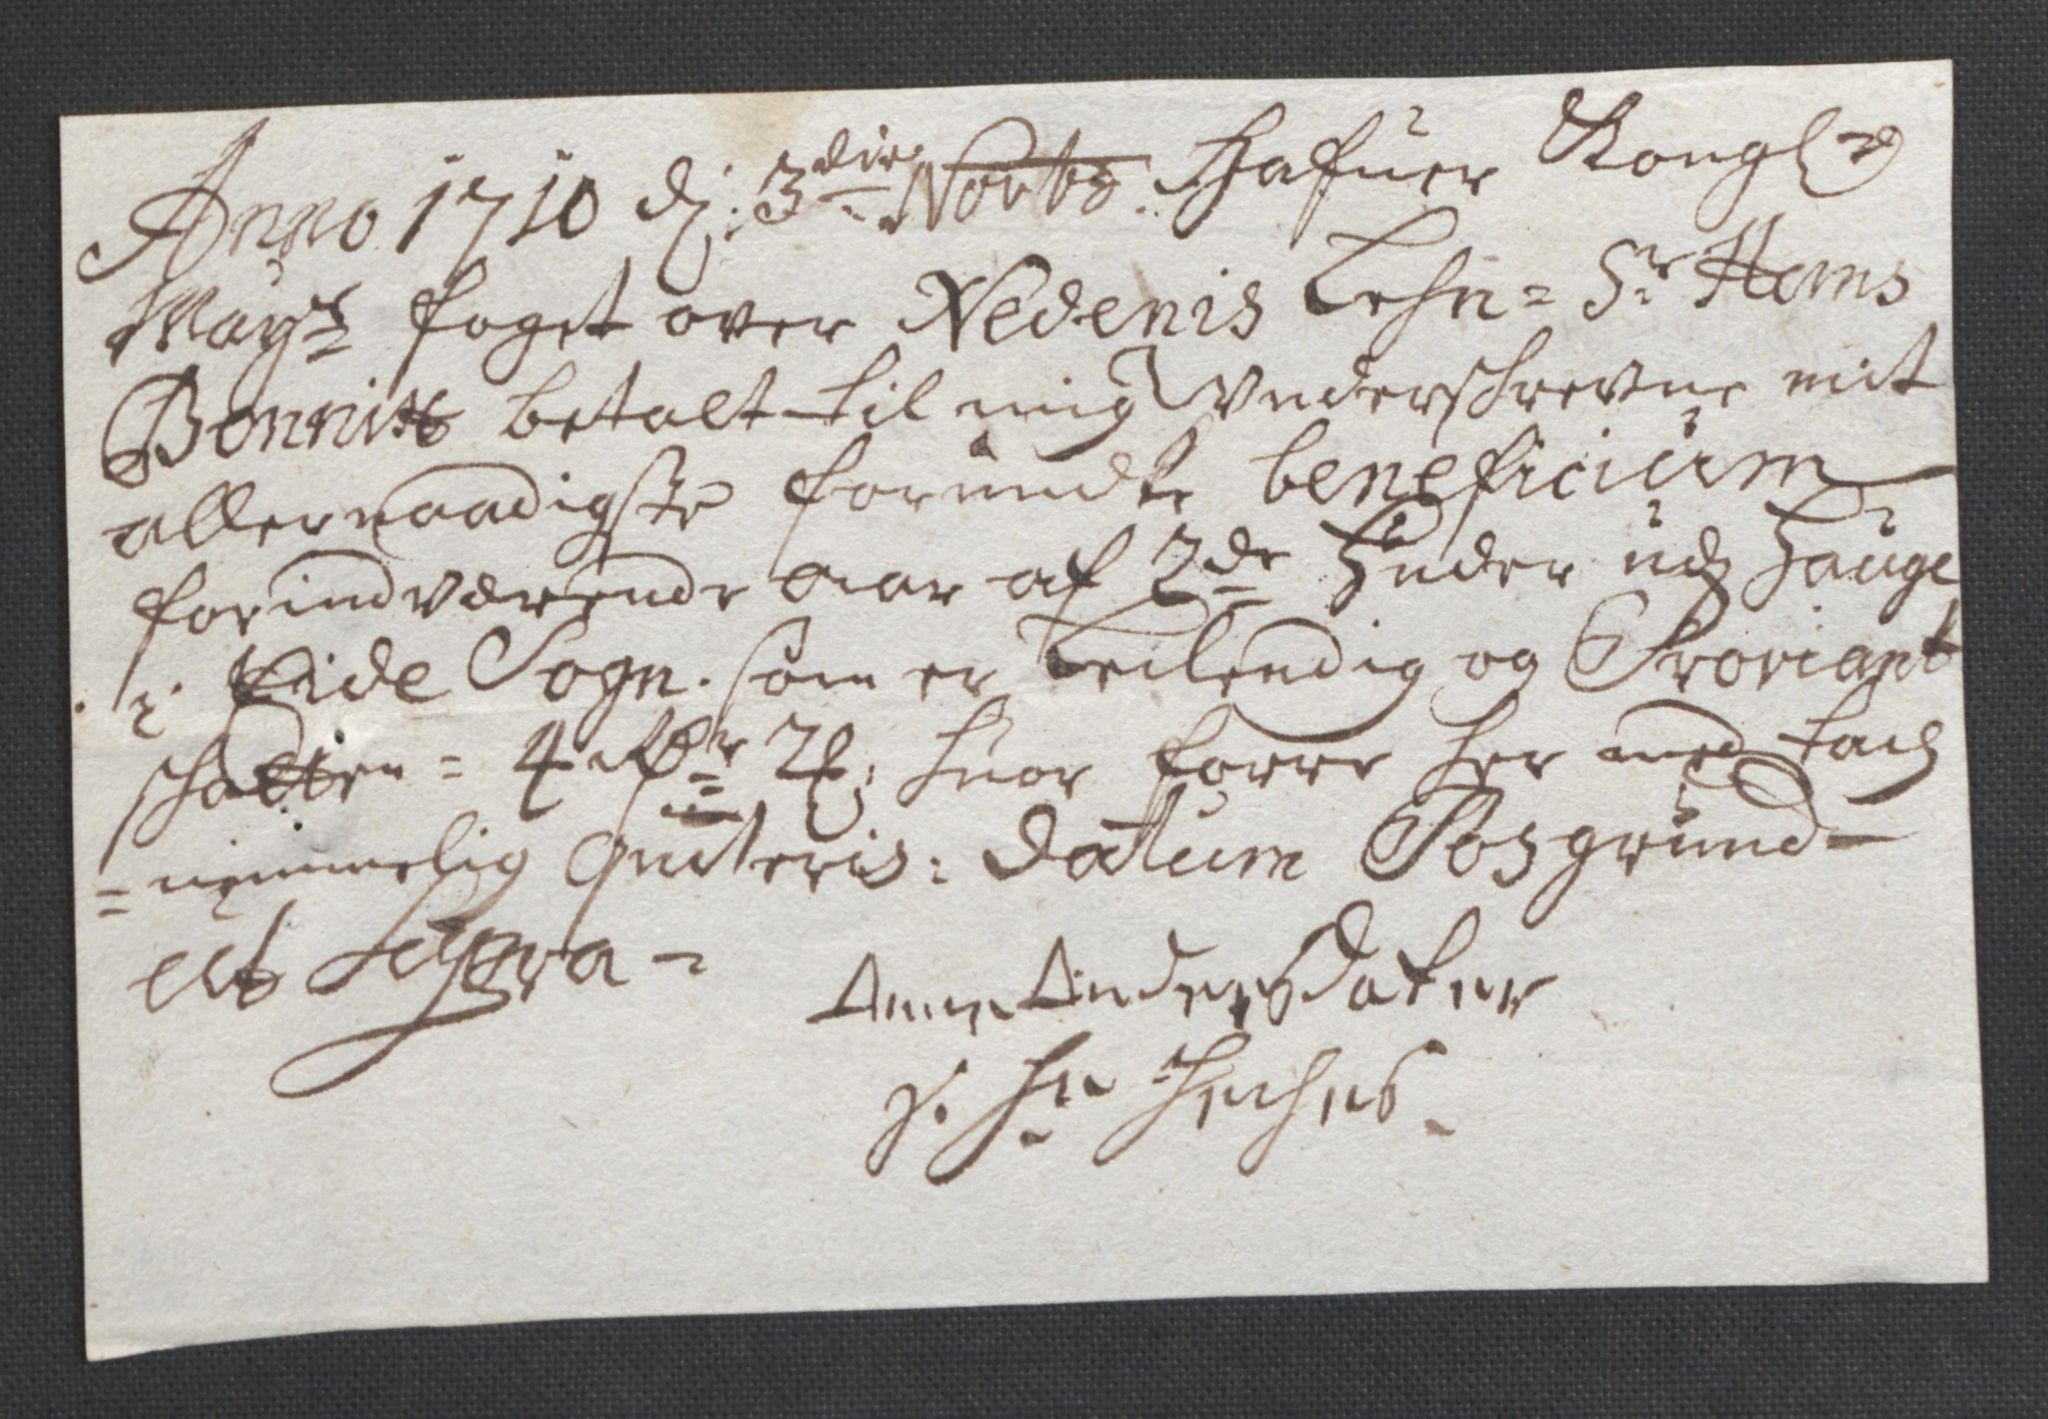 Anno 1710 d: 3die Novbr: Hafuer Kongl:
Mayts foget over Nedenis Lehn = Sr Hans
Bonnitz betalt til mig Underschrevne mit
allernaadigste forundte beneficium
for indværende aar af 2de Huder udj Hauge
i Eide Sogn. som er Leilendig og Proviant
schatten = 4 Rdr 2 : huor forre her med tach
= nemmelig quiteris: datum Posgrund
ut Supra -
Anne Andersdatter
S: Hr Jechis